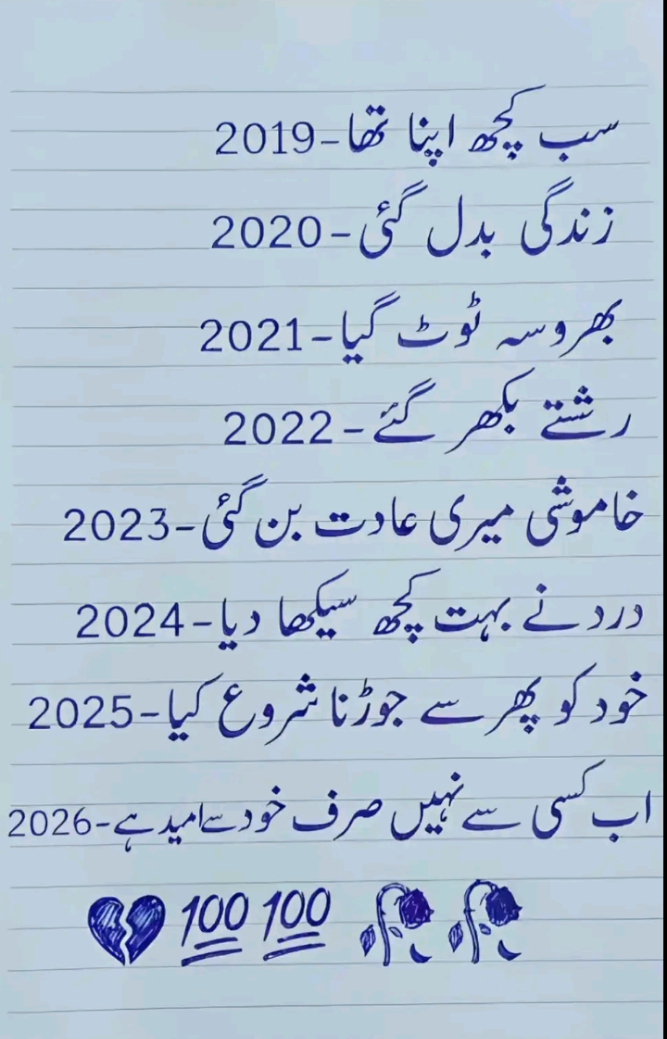 سب کچھ اپنا تھا-2019
زندگی بدل گئی-2020
بھروسہ ٹوٹ گیا-2021
رشتے بکھر گئے-2022
خاموشی میری عادت بن گئی-2023
درد نے بہت کچھ سیکھا دیا-2024
خود کو پھر سے جوڑنا شروع کیا-2025
اب کسی سے نہیں صرف خود سے امید ہے-2026
💔 💯 💯 🥀 🥀